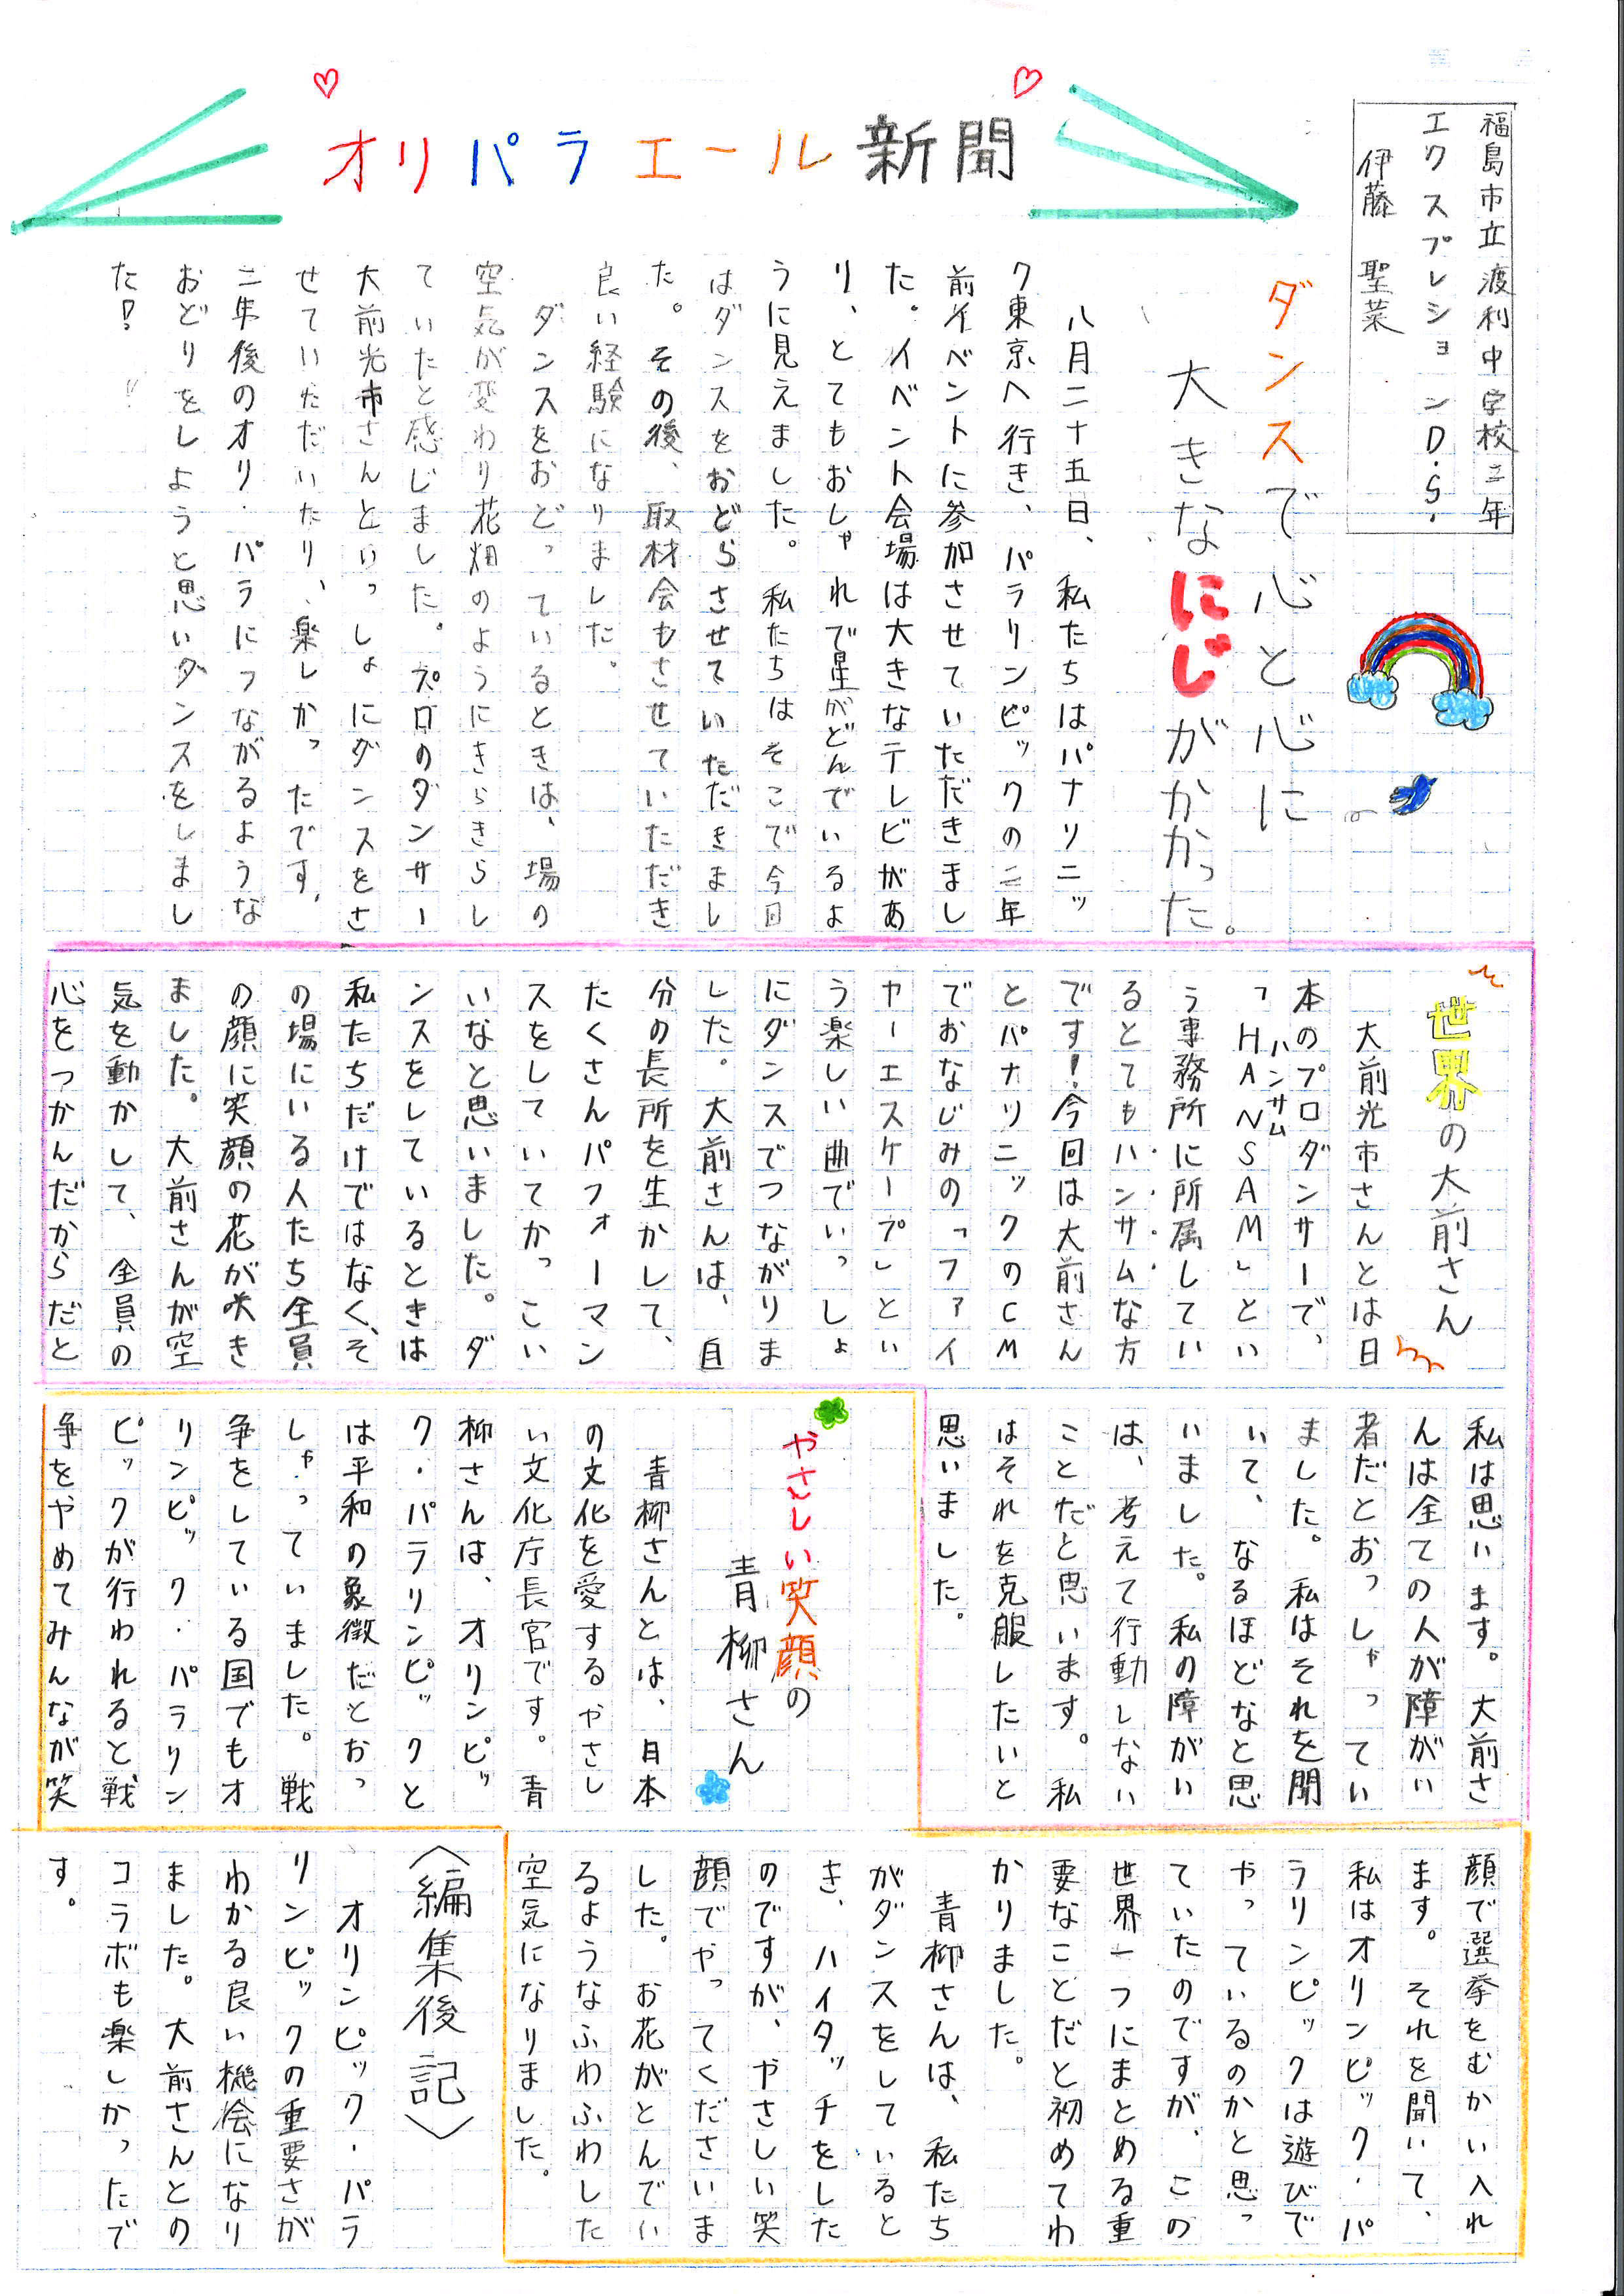 オリパラエール新聞
福島市立渡利中学校三年
エクスプレッションD.S.
伊藤 聖菜
ダンスで心と心に
大きなにじがかかった。
八月二十五日、私たちはパナソニッ
ク東京へ行き、パラリンピックの二年
前イベントに参加させていただきまし
た。イベント会場は大きなテレビがあ
り、とてもおしゃれで星がとんでいるよ
うに見えました。私たちはそこで今回
はダンスをおどらさせていただきまし
た。その後、取材会もさせていただき
良い経験になりました。
ダンスをおどっているときは、場の
空気が変わり花畑のようにきらきらし
ていたと感じました。プロのダンサー
大前光市さんといっしょにダンスをさ
せていただいたり、楽しかったです。
二年後のオリ・パラにつながるような
おどりをしようと思いダンスをしまし
た!
世界の大前さん
大前光市さんとは日
本のプロダンサーで、
「HANSAM」とい
ハンサム
う事務所に所属してい
るとてもハンサムな方
です!今回は大前さん
とパナソニックのCM
でおなじみの「ファイ
ヤーエスケープ」とい
う楽しい曲でいっしょ
にダンスでつながりま
した。大前さんは、自
分の長所を生かして、
たくさんパフォーマン
スをしていてかっこい
いなと思いました。ダ
ンスをしているときは
私たちだけではなく、そ
の場にいる人たち全員
の顔に笑顔の花が咲き
ました。大前さんが空
気を動かして、全員の
心をつかんだからだと
私は思います。大前さ
んは全ての人が障がい
者だとおっしゃってい
ました。私はそれを聞
いて、なるほどなと思
いました。私の障がい
は、考えて行動しない
ことだと思います。私
はそれを克服したいと
思いました。
やさしい笑顔の
青柳さん
青柳さんとは、日本
の文化を愛するやさし
い文化庁長官です。青
柳さんは、オリンピッ
ク・パラリンピックと
は平和の象徴だとおっ
しゃっていました。戦
争をしている国でもオ
リンピック・パラリン
ピックが行われると戦
争をやめてみんなが笑
顔で選挙をむかい入れ
ます。それを聞いて、
私はオリンピック・パ
ラリンピックは遊びで
やっているのかと思っ
ていたのですが、この
世界一つにまとめる重
要なことだと初めてわ
かりました。
青柳さんは、私たち
がダンスをしていると
き、ハイタッチをした
のですが、やさしい笑
顔でやってくださいま
した。お花がとんでい
るようなふわふわした
空気になりました。
〈編集後記〉
オリンピック・パラ
リンピックの重要さが
わかる良い機会になり
ました。大前さんとの
コラボも楽しかったで
す。